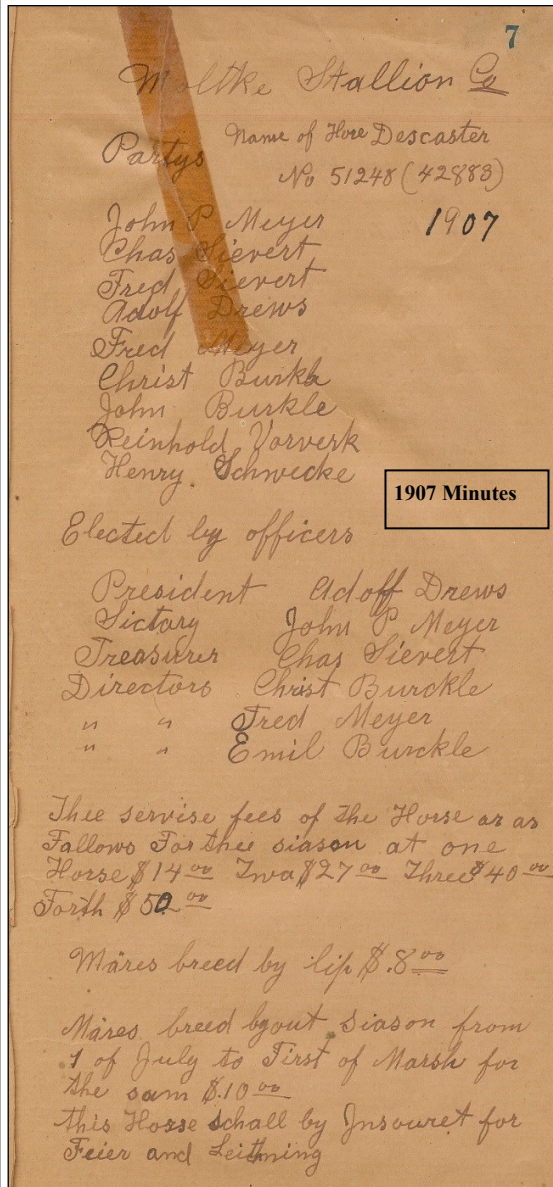 7
Moltke Stallion Co
Name of Hore Descaster
Partys
No 51248 (42883)
1907
John P Meyer
Chas Sievert
Fred Sievert
Adolf Drews
Fred Meyer
Christ Burkle
John Burkle
Reinhold Vorverk
Henry Schwecke
1907 Minutes
Elected by officers
President Adoff Drews
Sictary John P Meyer
Treasurer Chas Sievert
Directors Christ Burckle
" " Fred Meyer
" " Emil Burckle
Thee servise fees of the Horse ar as
Fallows For thee siason at one
Horse $14 00 Twa $27 00 Three $40 00
Forth $50 00
Mares breed by lip $.8 00
Mares breed byout siason from
1 of July to First of Marsh for
the sam $.10 00
this Horse schall by Insouret for
Feier and Leithning